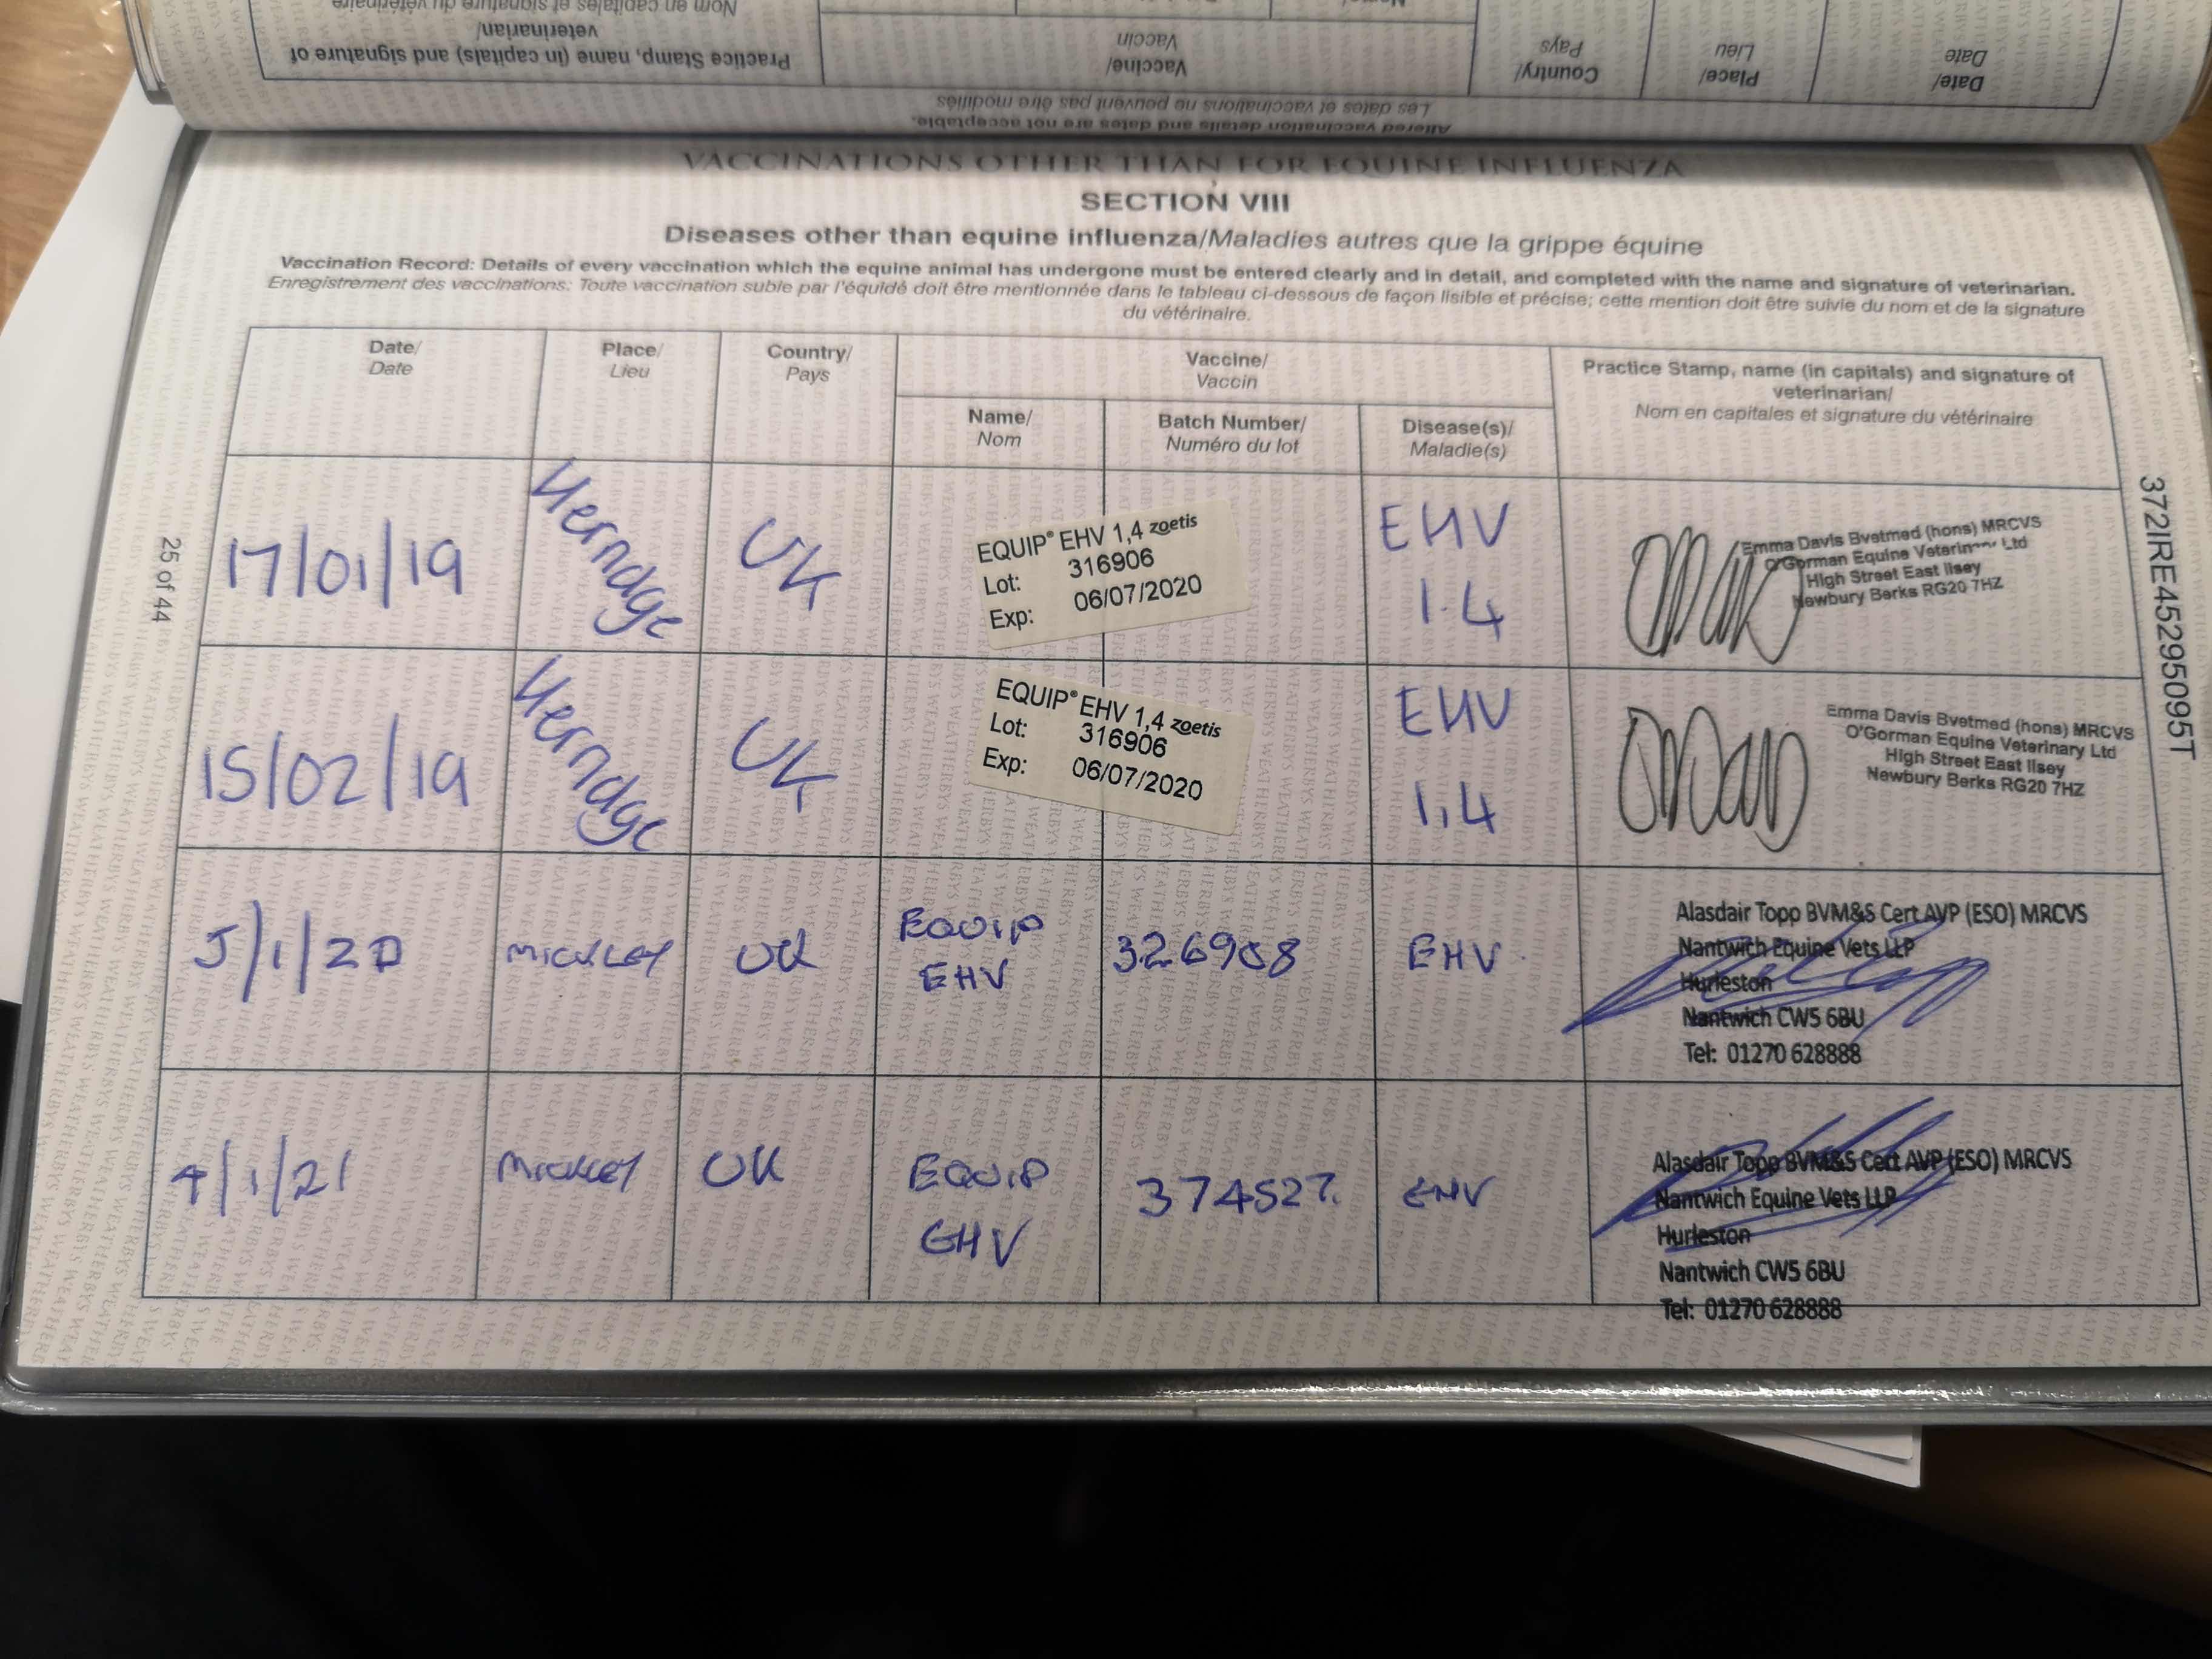 Nom en capitales et signature du vétérinaire
Practice Stamp, name (in capitals) and signature of
veterinarian/
Vaccine/
Vaccin
Country/
Pays
Place/
Lieu
Date/
Date
Les dates et vaccinations ne peuvent pas être modifiés
Altered vaccination details and dates are not acceptable.
VACCINATIONS OTHER THAN FOR EQUINE INFLUENZA
SECTION VIII
Diseases other than equine influenza/Maladies autres que la grippe équine
Vaccination Record: Details of every vaccination which the equine animal has undergone must be entered clearly and in detail, and completed with the name and signature of veterinarian.
Enregistrement des vaccinations: Toute vaccination subie par l'équidé doit être mentionnée dans le tableau ci-dessous de façon lisible et précise; cette mention doit être suivie du nom et de la signature
du vétérinaire.
Date/
Date
Place/
Lieu
Country/
Pays
Vaccine/
Vaccin
Name/
Nom
Batch Number/
Numéro du lot
Disease(s)/
Maladie(s)
Practice Stamp, name (in capitals) and signature of
veterinarian/
Nom en capitales et signature du vétérinaire
17/01/19
Herridge
UK
EQUIP® EHV 1,4 zoetis
Lot: 316906
Exp: 06/07/2020
EHV
1.4
Emma Davis Bvetmed (hons) MRCVS
O'Gorman Equine Veterinary Ltd
High Street East Ilsey
Newbury Berks RG20 7HZ
15/02/19
Herridge
UK
EQUIP® EHV 1,4 zoetis
Lot: 316906
Exp: 06/07/2020
EHV
1,4
Emma Davis Bvetmed (hons) MRCVS
O'Gorman Equine Veterinary Ltd
High Street East Ilsey
Newbury Berks RG20 7HZ
5/1/20
MICKLEY
UK
EQUIP
EHV
326908
EHV
Alasdair Topp BVM&S Cert AVP (ESO) MRCVS
Nantwich Equine Vets LLP
Hurleston
Nantwich CW5 6BU
Tel: 01270 628888
4/1/21
MICKLEY
UK
EQUIP
EHV
374527
EHV
Alasdair Topp BVM&S Cert AVP (ESO) MRCVS
Nantwich Equine Vets LLP
Hurleston
Nantwich CW5 6BU
Tel: 01270 628888
25 of 44
372IRE45295095T